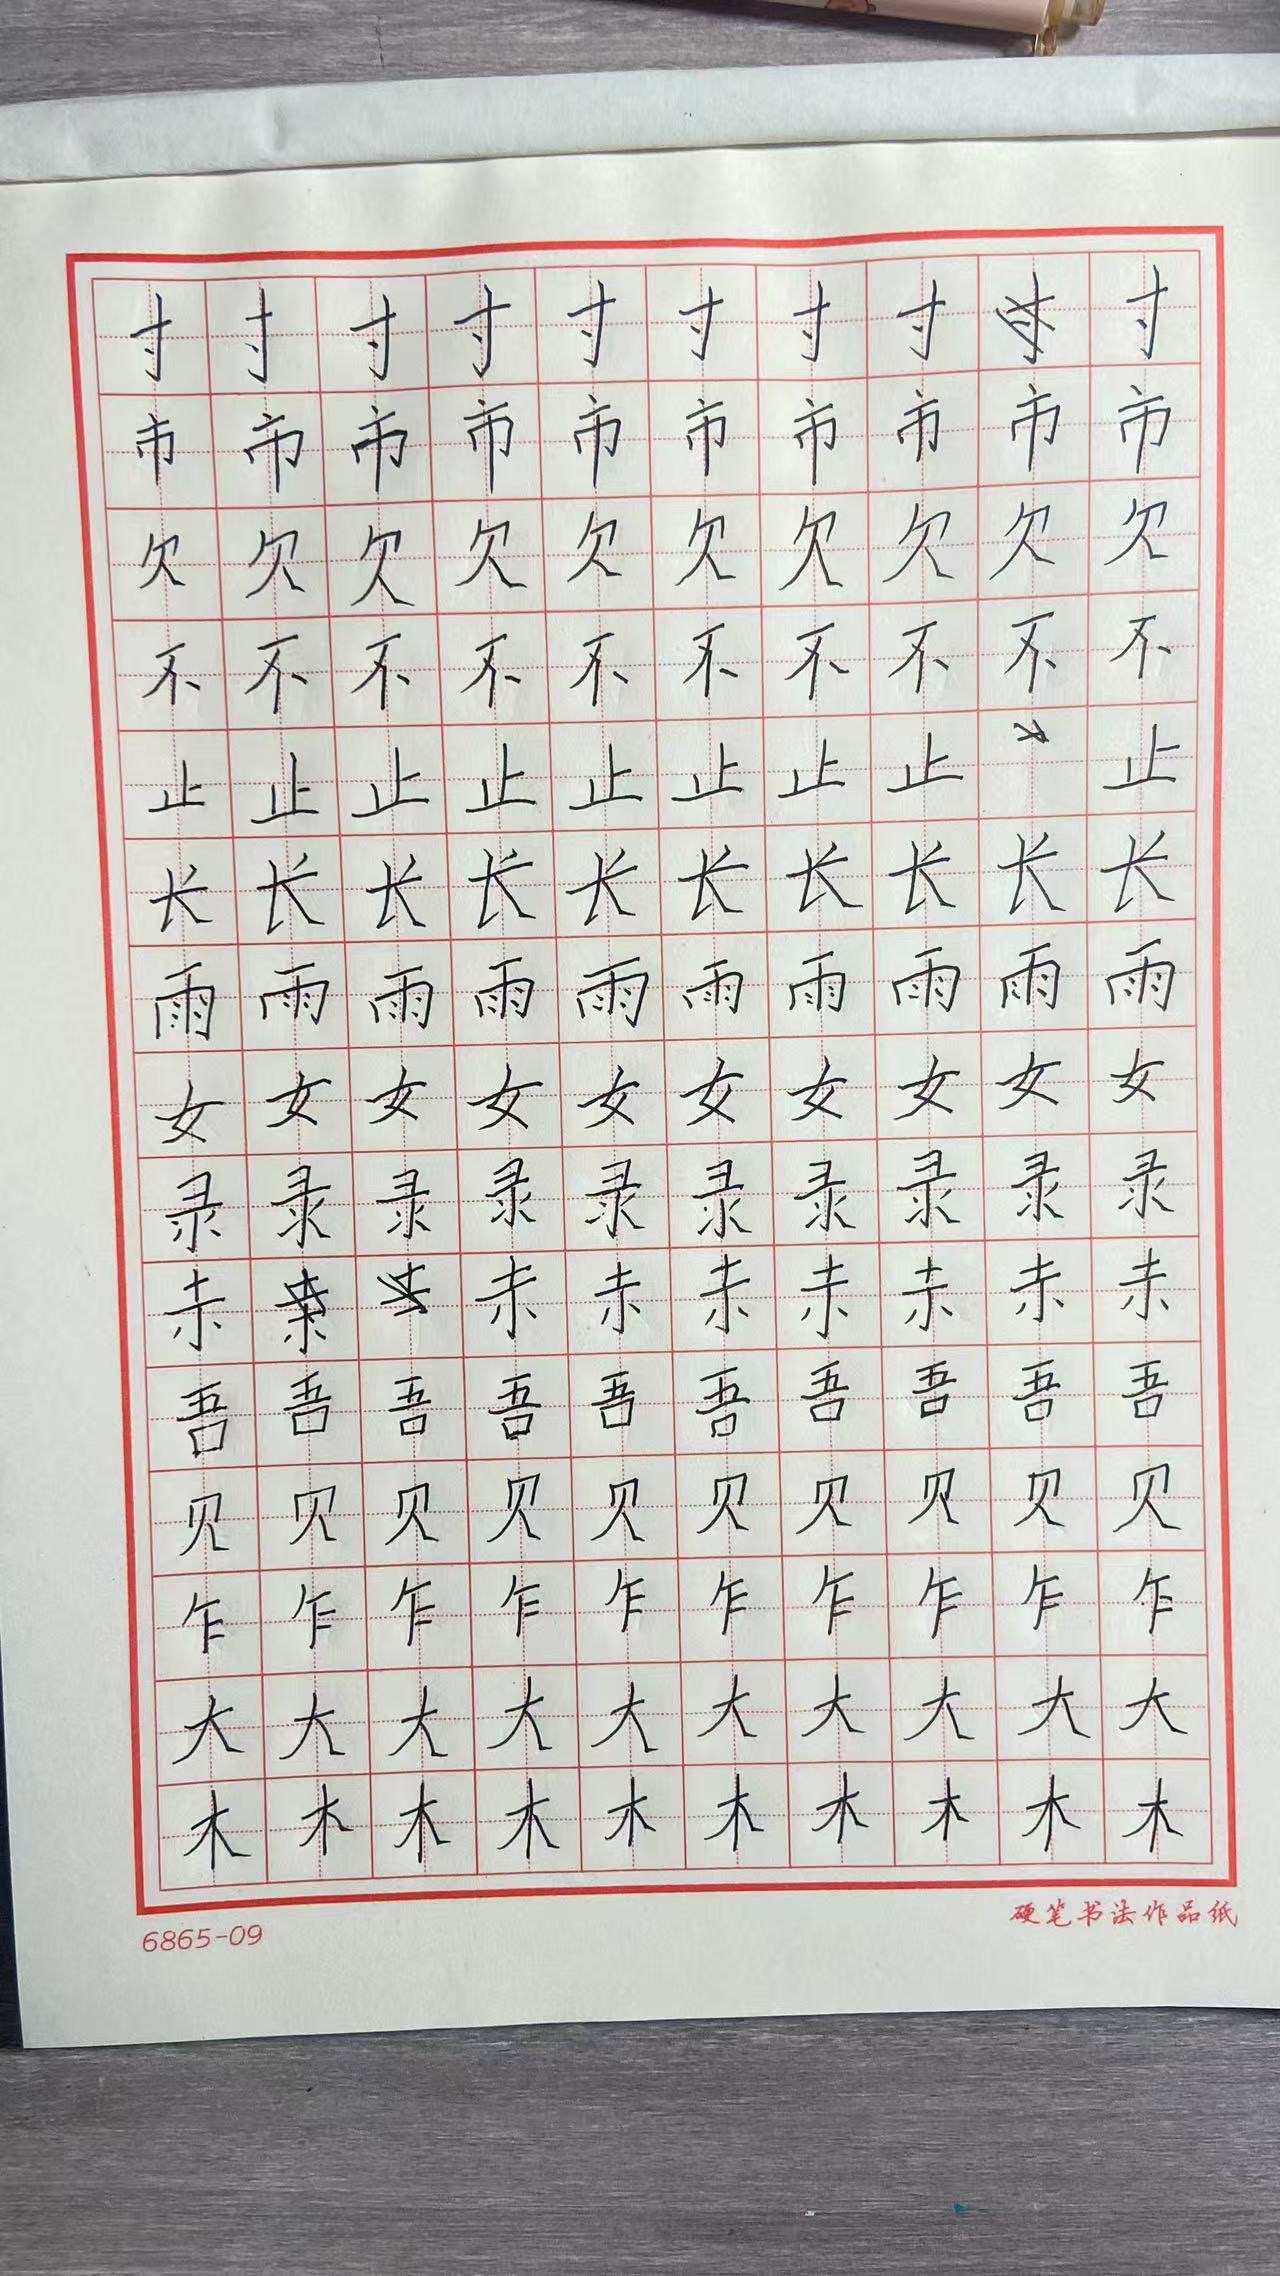 寸寸寸寸寸寸寸寸寸
市市市市市市市市市市
欠欠欠欠欠欠欠欠欠欠
不不不不不不不不不不
止止止止止止止止止
长长长长长长长长长长
雨雨雨雨雨雨雨雨雨雨
女女女女女女女女女女
录录录录录录录录录录
吾吾吾吾吾吾吾吾吾吾
贝贝贝贝贝贝贝贝贝贝
乍乍乍乍乍乍乍乍乍乍
大大大大大大大大大大
木木木木木木木木木木
6865-09
硬笔书法作品纸